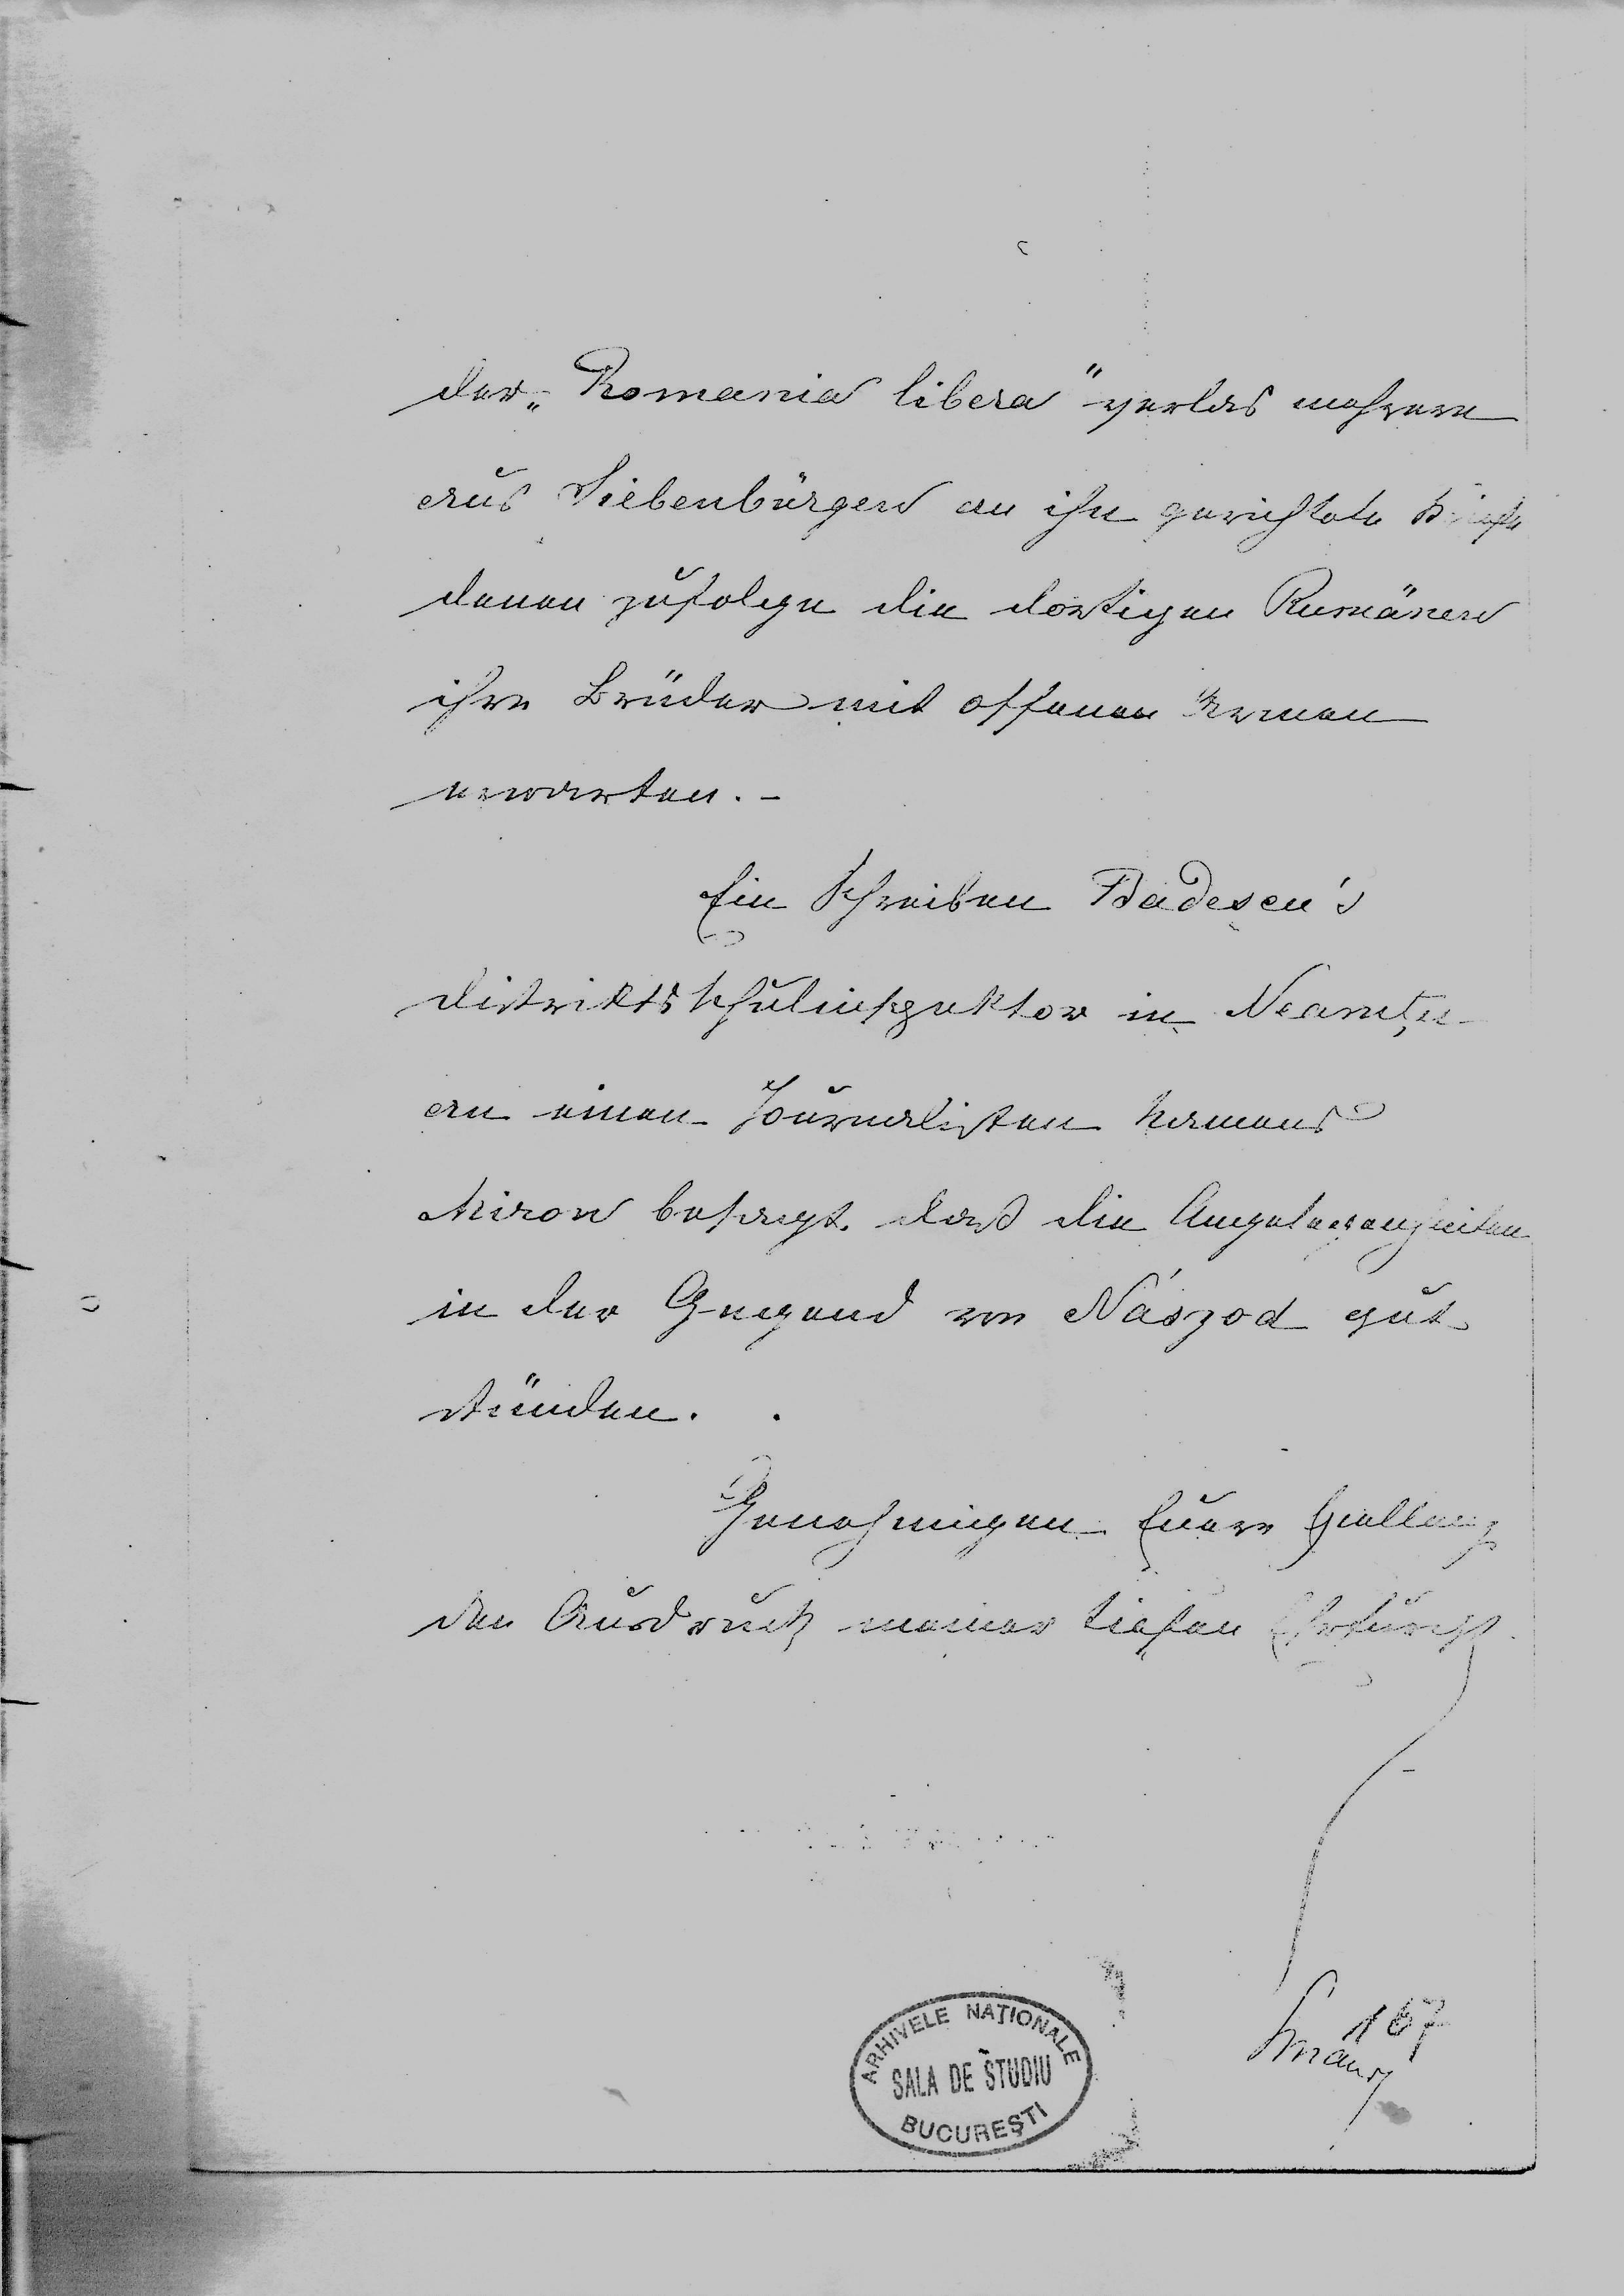 der „Romania libera" verlas mehrere
aus Siebenbürgen an ihn gerichtete Briefe
denen zufolge die dortigen Rumänen
ihre Brüder mit offenen Armen
erwarten. –
Ein Schreiben Badescu's
Distriktsschulinspektor in Neamțu
an einen Journalisten namens
Miron besagt, daß die Angelegenheiten
in der Gegend von Nászod gut
stünden.
Genehmigen Euere Excellenz
den Ausdruck meiner tiefen Ehrfurcht
167
ARHIVELE NAȚIONALE
SALA DE STUDIU
BUCUREȘTI